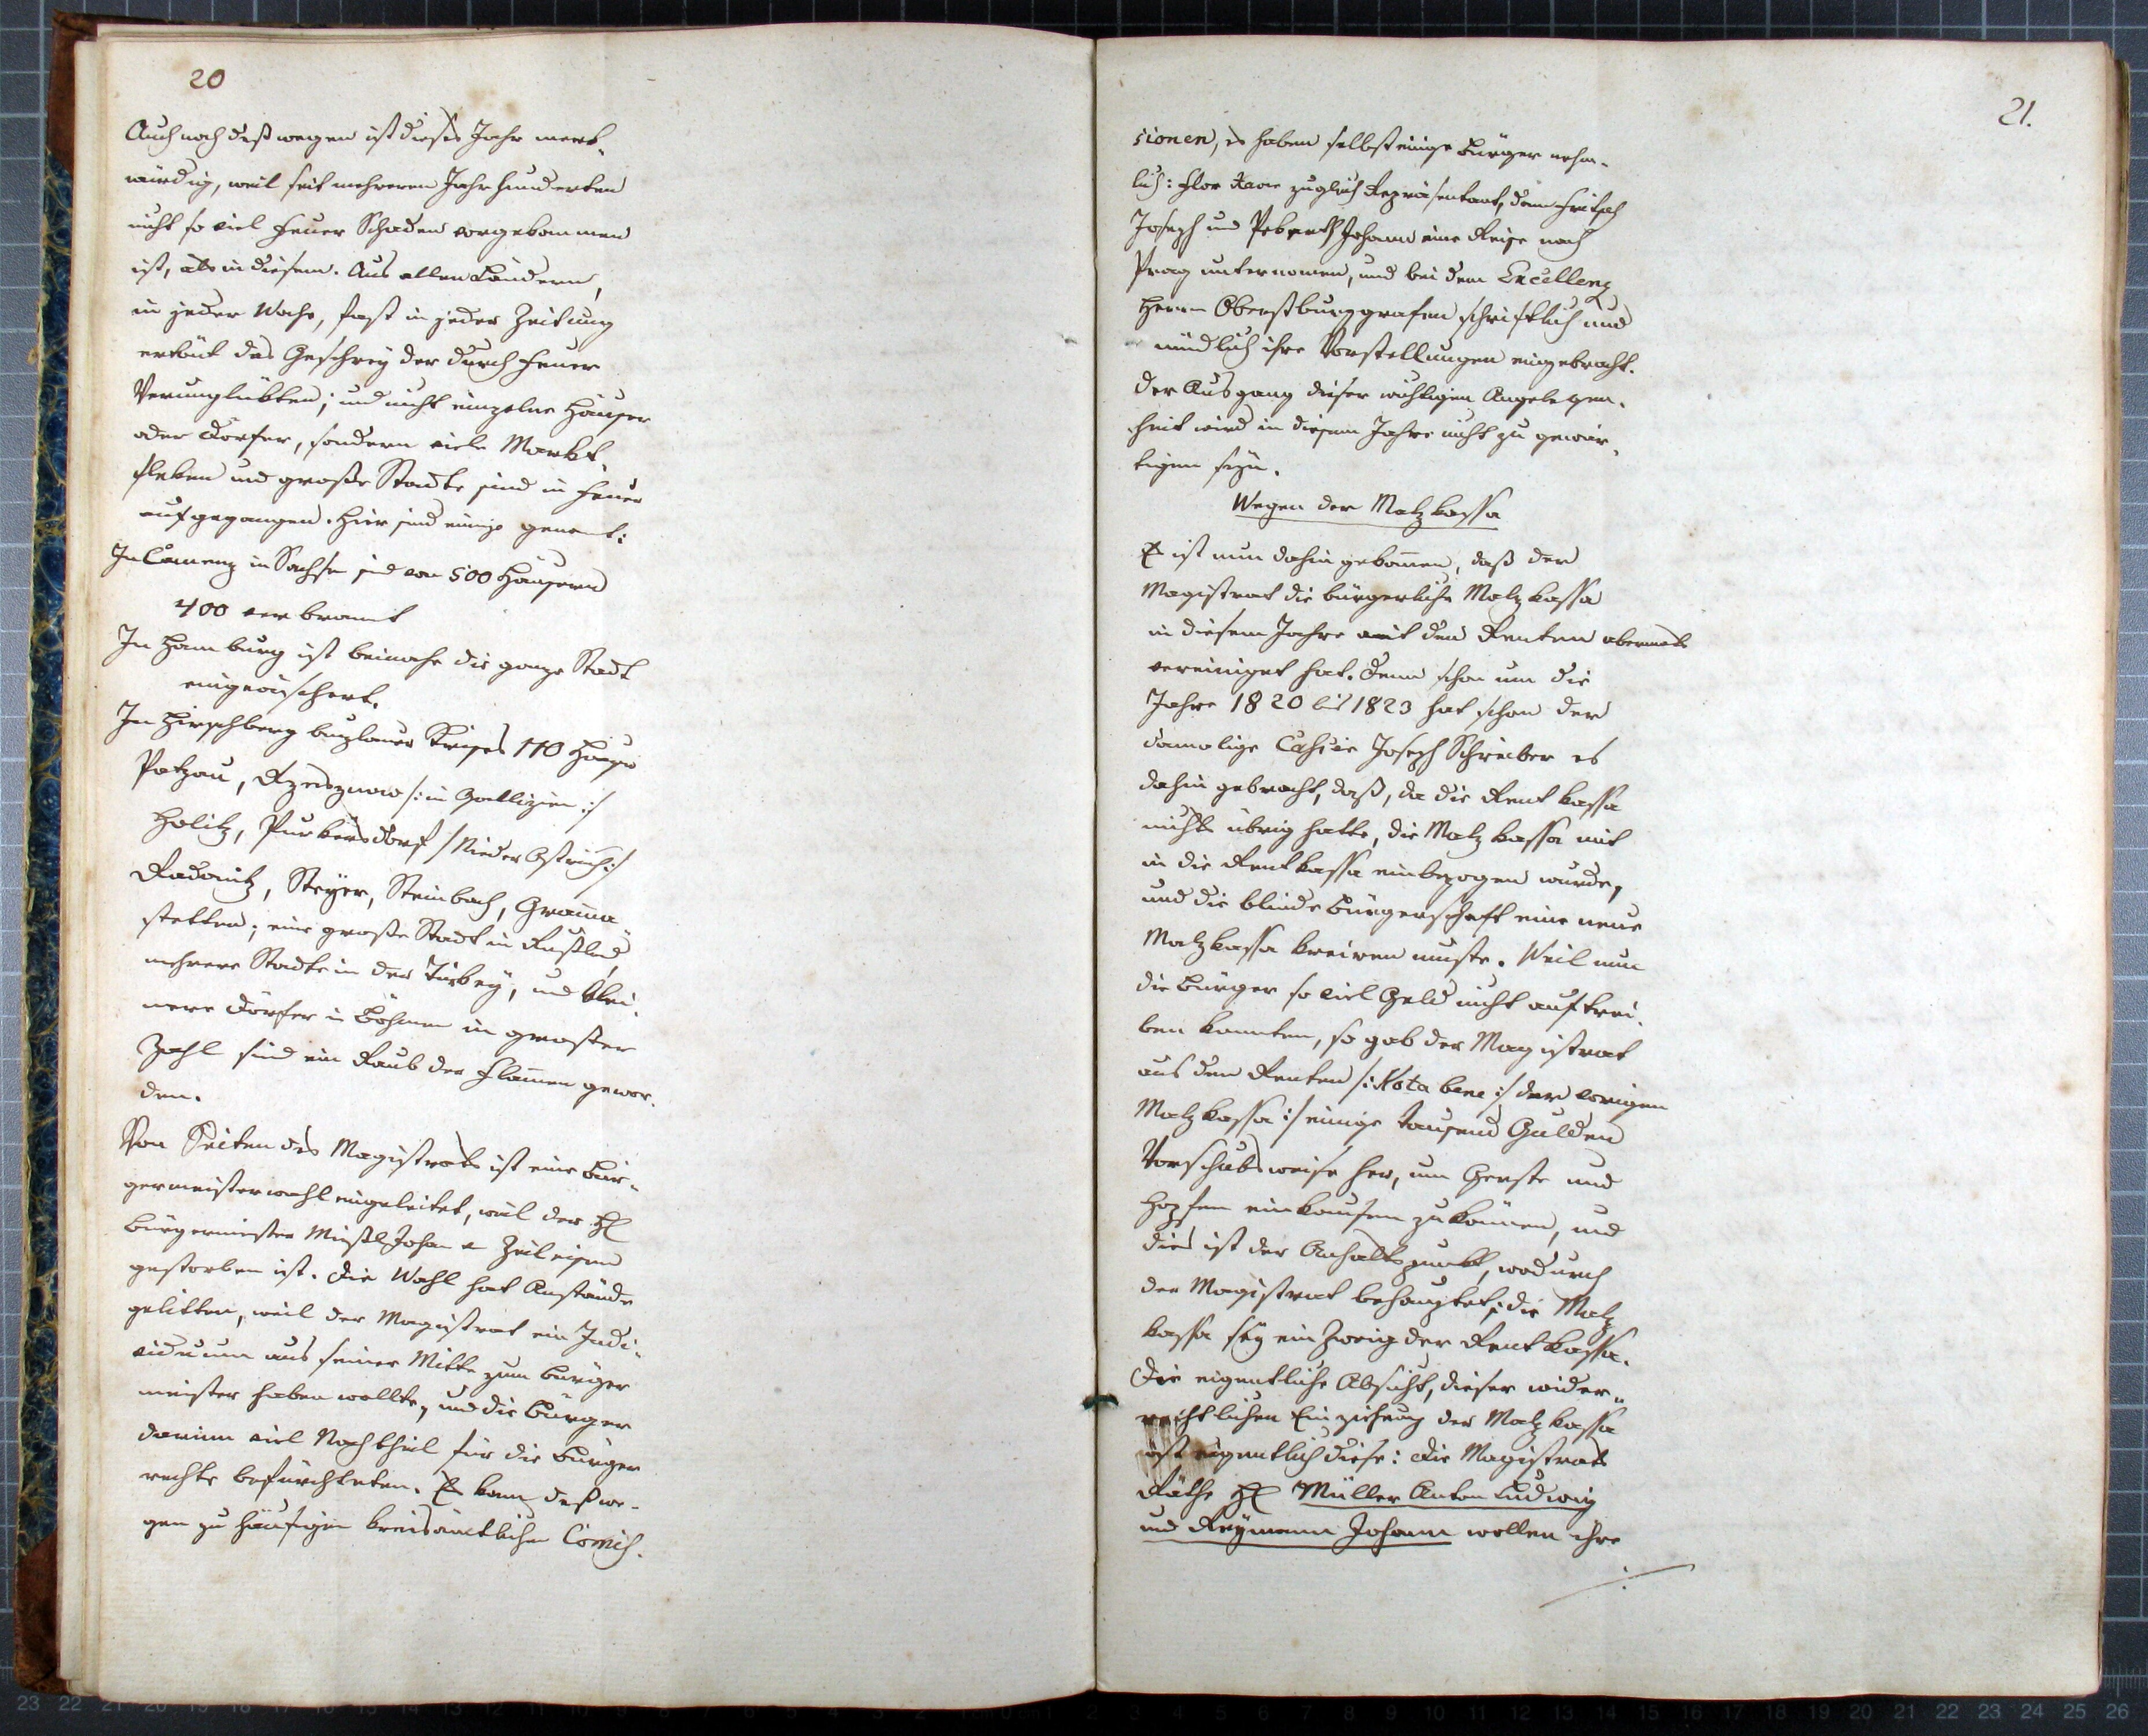 20
Auch noch deßwegen ist dieses Jahr merk-
würdig, weil seit mehreren Jahrhunderten
nicht so viel Feuer Schaden vorgekommen
ist, als in diesem. Aus allen Ländern,
in jeder Woche, fast in jeder Zeitung
ertönt das Geschrey der durch Feuer
Verunglükten; und nicht einzelne Häuser
oder Dörfer, sondern viele Markt-
fleken und große Stadte sind in Feuer
aufgegangen. Hier sind einige genent:
In Camenz in Sachse sind von 500 Häusern
400 verbrant
In Hamburg ist beinahe die ganze Stadt
eingeäschert.
In Hirschberg bunzlauer Kreises 110 Häuser
Patzau, Rzesznow /: in Gallizien :/
Holitz, Purkersdorf / Nieder Östreich :/
Radonitz, Steyer, Steinbach, Grama-
stetten; eine große Stadt in Rußland
mehrere Stadte in der Türkey, und klei-
nere Dörfer in Böhmen in großer
Zahl sind ein Raub der Flamen gewor-
den.
Von Seiten des Magistrats ist eine Bür-
germeisterwahl eingeleitet, weil der H
Bürgermeister Johan v Zeileisen
gestorben ist. Die Wahl hat Anstände
gelitten, weil der Magistrat ein Indi-
viduum aus seiner Mitte zum Bürger
meister haben wollte, und die Bürger
darinn viel Nachtheil für die Bürger
rechte befürchteten. Es kam deßwe-
gen zu häufigen kreisämtlichen Comis-
21.
sionen, es haben selbst einige Bürger nehm-
lich: Flor zugleich Repräsentant, dann Fritsch
Joseph und Johann eine Reise nach
Prag unternomen, und bei dem Excellenz
Herrn Oberstburggrafen schriftlich und
mündlich ihre Vorstellungen eingebracht.
Der Ausgang dieser wichtigen Angelegen-
heit wird in diesem Jahre nicht zu gewär-
tigen seyn.
Wegen der Malzkassa
Es ist nun dahin gekomen, daß der
Magistrat die bürgerliche Malzkassa
in diesem Jahre mit den Renten abermals
vereiniget hat. Denn schon um die
Jahre 1820 bis 1823 hat schon der
damalige Cassier Joseph Schreiber es
dahin gebracht, daß, da die Rent kassa
nichts übrig hatte, die Malz kassa mit
in die Rentkassa einbezogen wurde,
und die blinde Bürgerschaft eine neue
Malzkassa kreiren muste. Weil nun
die Bürger so viel Geld nicht auftrei-
ben konnten, so gab der Magistrat
aus den Renten /: Nota bene :/ der vorigen
Malzkassa :/ einige tausend Gulden
Vorschubsweise her, um Gerste und
Hopfen einkaufen zu können, und
dies ist der Anhaltspunkt, wodurch
der Magistrat behauptet: die Malz
kassa sey ein Zweig der Rent kassa.
Die eigentliche Absicht, dieser wider-
rechtlichen Einziehung der Malz kassa
ist eigentlich diese: die Magistrats
Räthe H Müller Anton Ludwig
und Reymann Johann wollen ihre